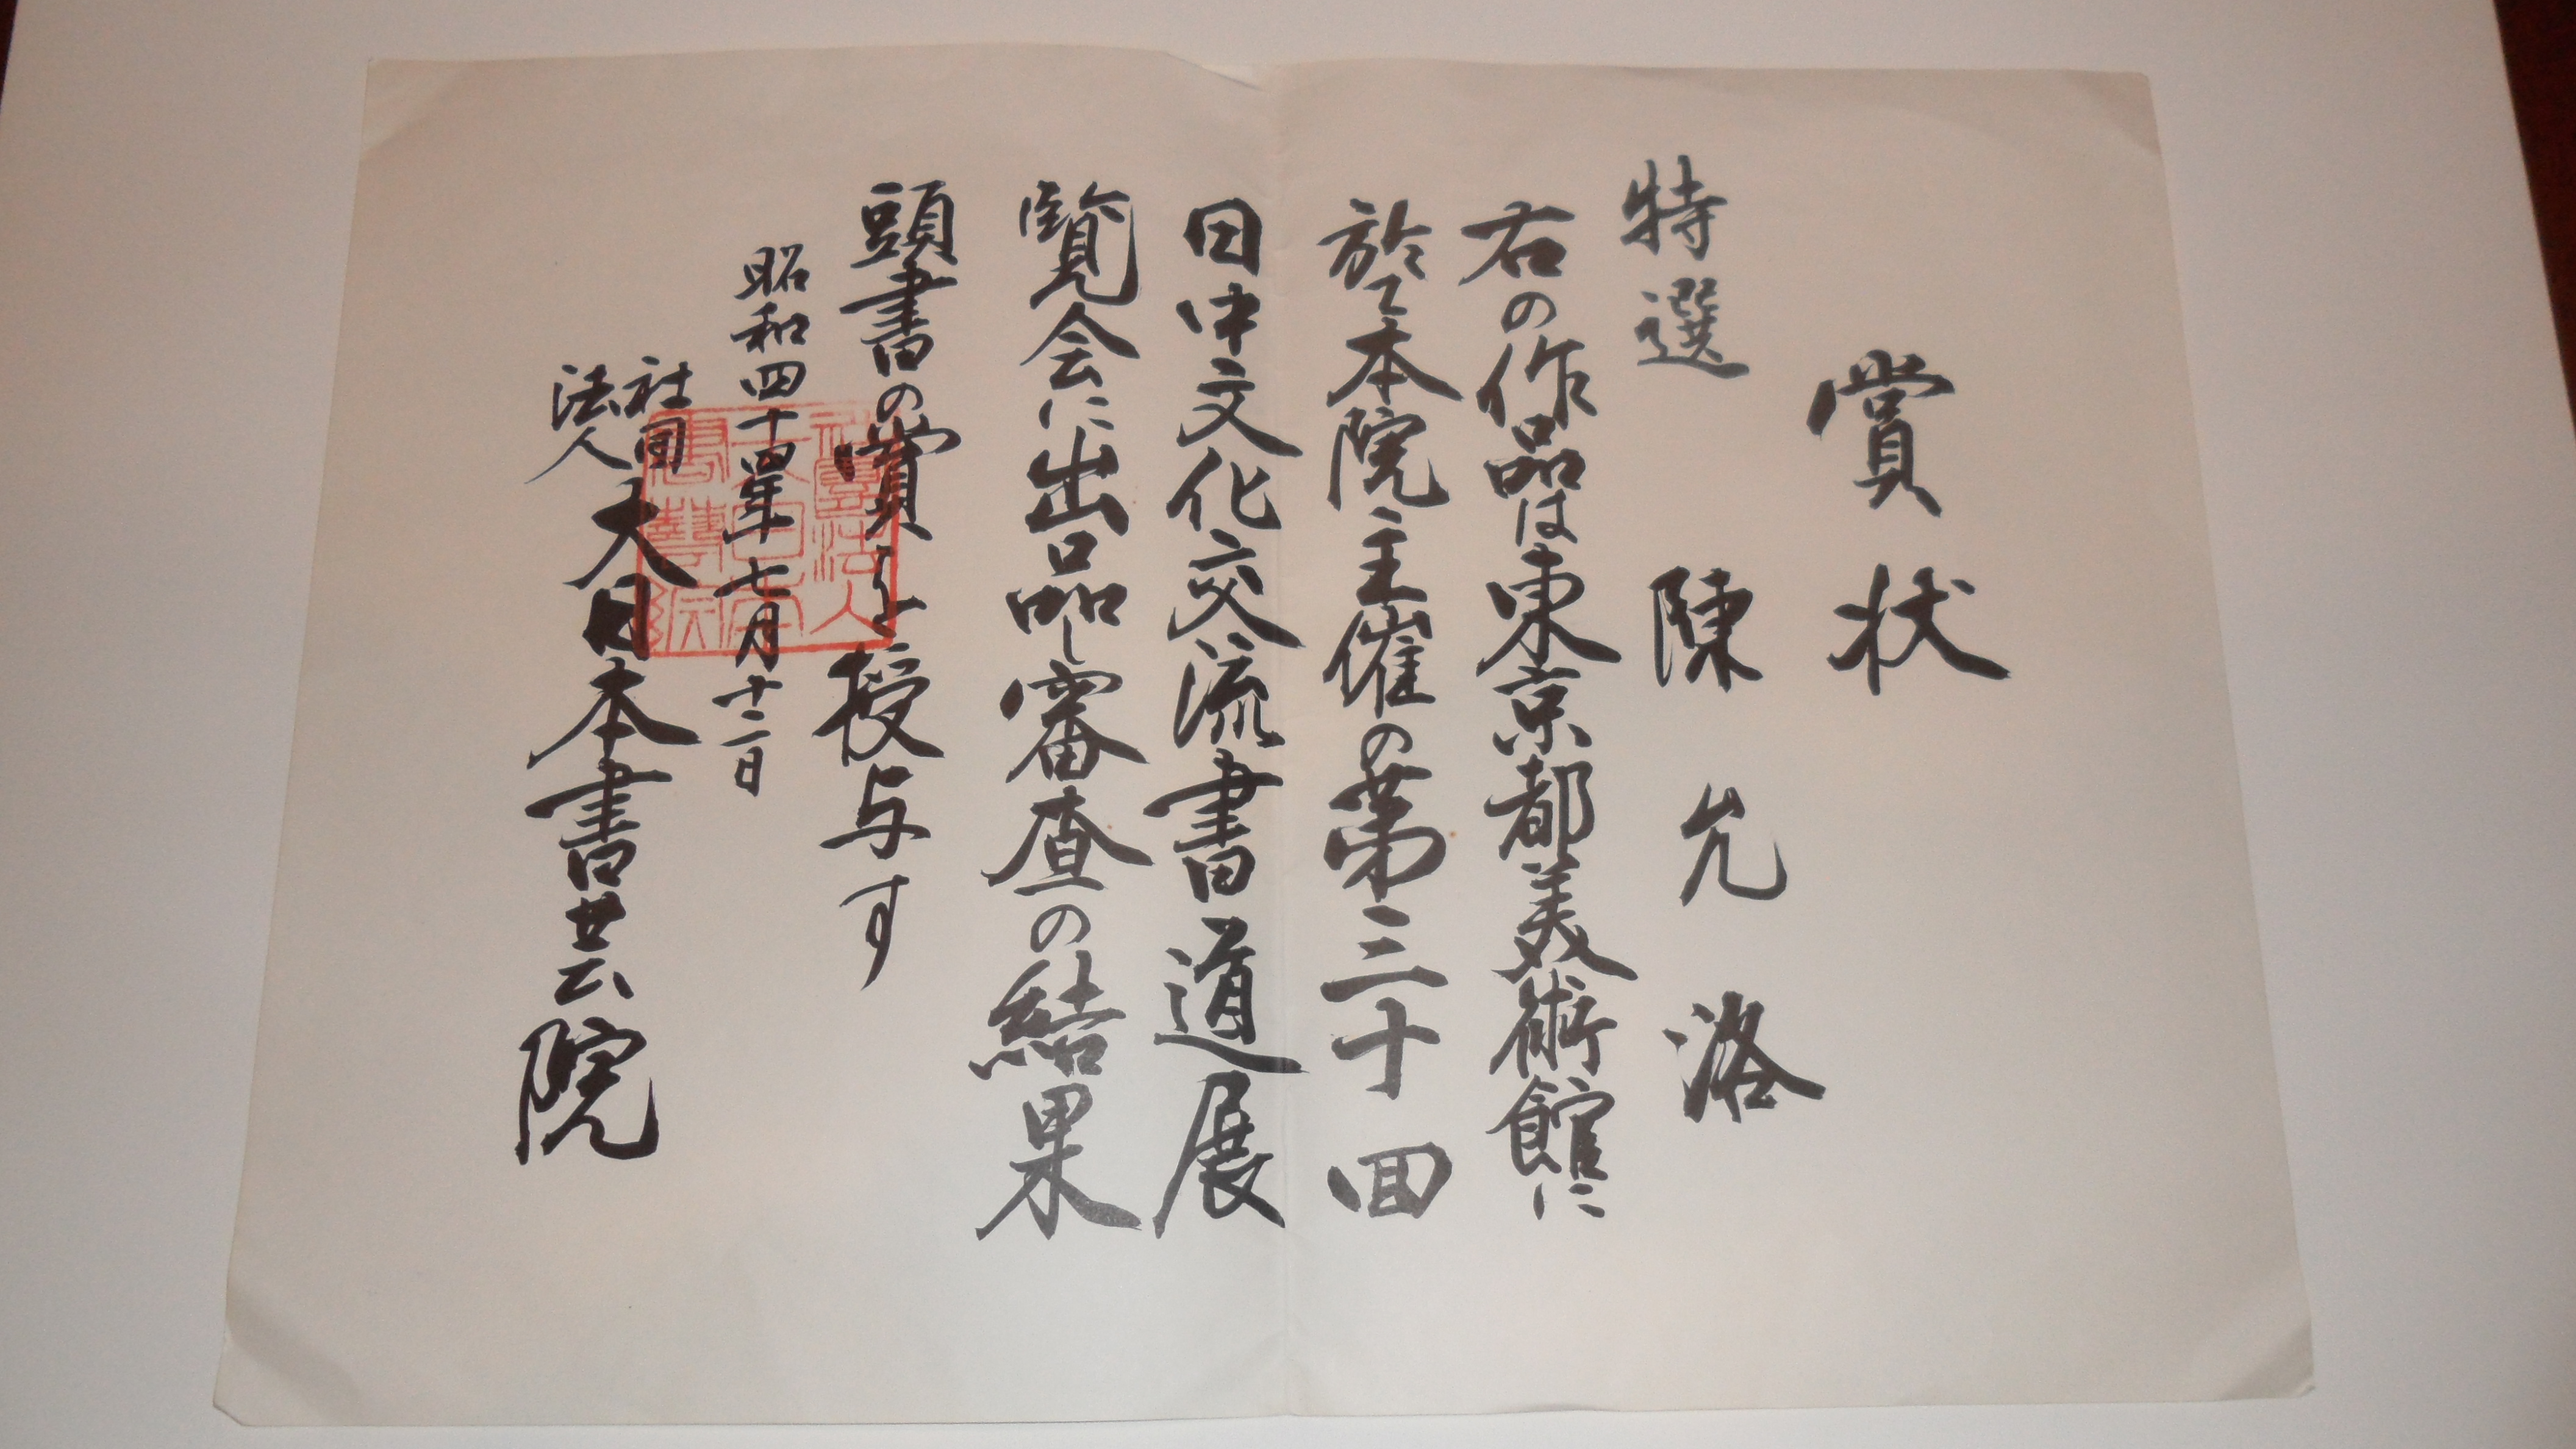 賞状
特選 陳允洛
右の作品は東京都美術館に
於て本院主催の第三十回
日中文化交流書道展
覧会に出品し審査の結果
頭書の賞を授与す
昭和四十四年七月十二日
社団法人 大日本書芸院
社團法人
大日本
書藝院